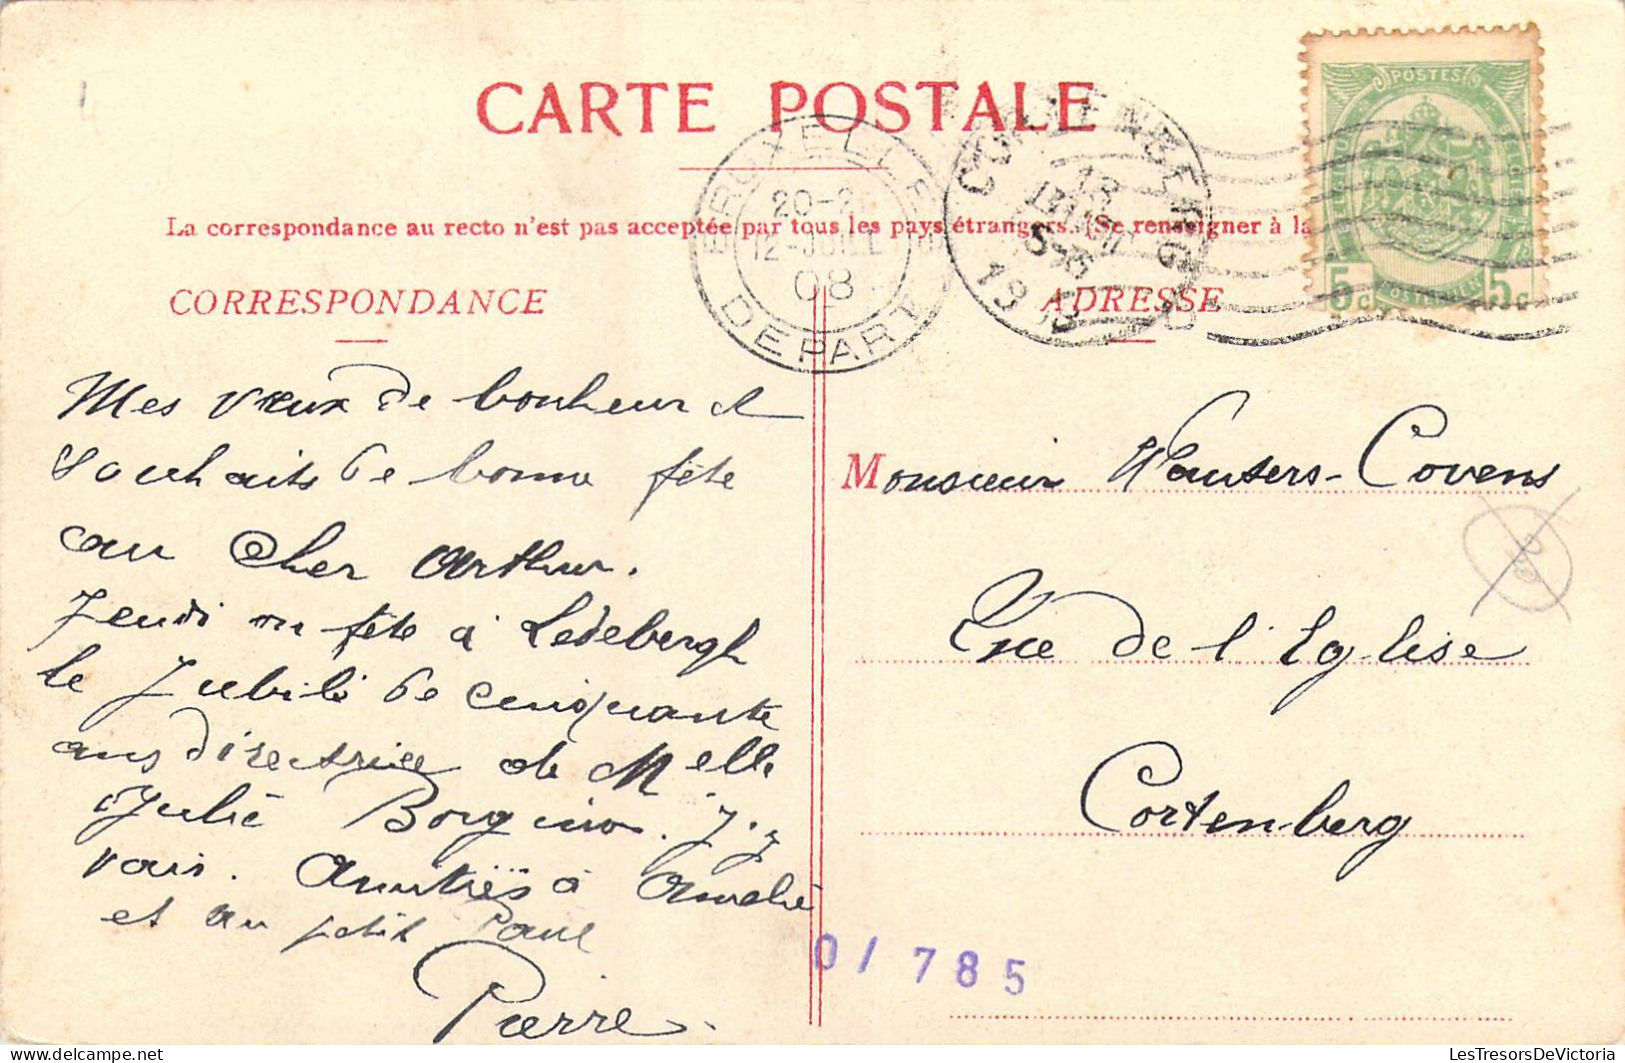 CARTE POSTALE
La correspondance au recto n'est pas acceptée par tous les pays étrangers. (Se renseigner à la
CORRESPONDANCE
Mes vœux de bonheur et
souhaits de bonne fête
au cher Arthur.
Jeudi on fête à Ledebergh
le Jubilé de cinquante
ans directrice de Melle
Julie. J'y
vais. Amitiés à Amelie
et au petit Paul
Pierre.
BRUXELLES
12-JUIL
08
DEPART
CORTENBERG
POSTES
5c 5c
ADRESSE
Monsieur Wauters-Covens
Rue de l'Eglise
Cortenberg
0/ 785
LesTresorsDeVictoria
delcampe.net